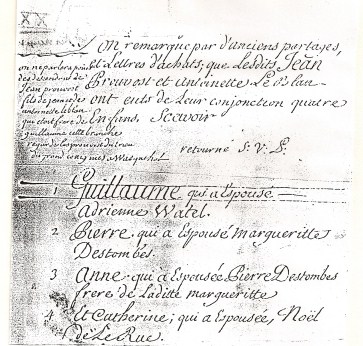 XX
on remarque par d'anciens partages,
et Lettres d'achats, que Lesdits Jean
Prouvost et Antoinette Le blan
ont euts de Leur conjonction quatre
Enfans, Scavoir
on ne parlera point
des descendans de
Jean prouvost
fils de jean et de
antoinette leblan
qui etoit frere de
guillaume cette branche
du grand cottignies a Wasquehal
retourne S. V. P.
1 Guillaume qui a Epousé
Adrienne Watel.
2 Pierre, qui a Epousé margueritte
Destombes.
3 Anne, qui a Epousée Pierre Destombes
frere de Laditte margueritte
4 et Catherine; qui a Epousée, Noël
de Le Rue.